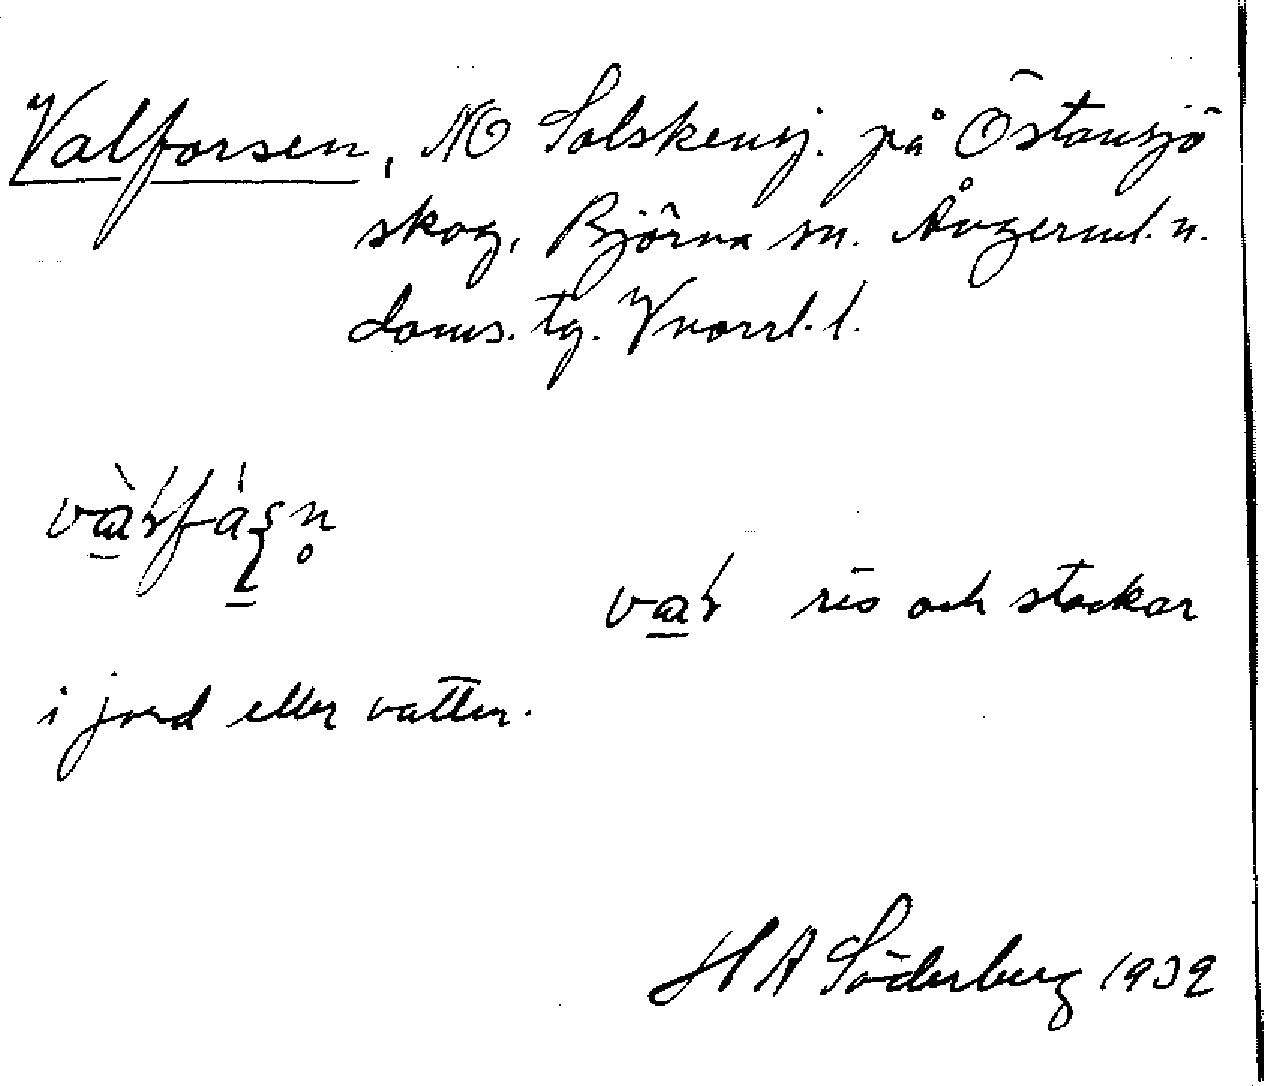 Valforsen, NO Solskensj. på Östansjö
skog, Björna sn. Ångerml. n.
doms. tg. Vnorrl. l.
ris och stockar
i jord eller vatten.
H A Söderberg 1939